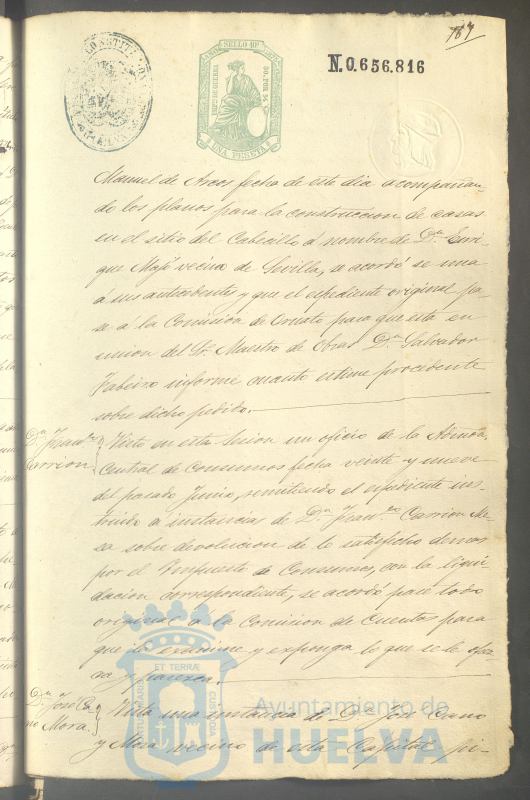 167
SELLO 10º
UNA PESETA
N.0.656.816
Manuel de Arcos fecha de este dia acompañan-
do los planos para la construccion de casas
en el sitio del Cabecillo á nombre de Dn. Enri-
que vecino de Sevilla, se acordó se una
á sus antecedentes y que el espediente original pa-
se a la Comision de Ornato para que esta en
union del Sr. Maestro de Obras Dn. Salvador
informe cuanto estime procedente
sobre dicho pedido.
Dn. Franco.
Carrion
Visto en esta sesion un oficio de la Admon.
Central de Consumos fecha veinte y nueve
del pasado Junio, remitiendo el espediente ins-
truido a instancias de Dn. Franco. Carrion Me-
sa sobre devolucion de lo satisfecho demas
por el Impuesto de Consumos, con la liqui-
dacion correspondiente, se acordó pase todo
original á la Comision de Cuentas para
que lo examine y exponga lo que se le ofrez-
ca y parezca.
Dn. José Ca-
no Mora.
Vista una instancia de Dn. José Cano
y Mora vecino de esta Capital pi-
Ayuntamiento de
HUELVA